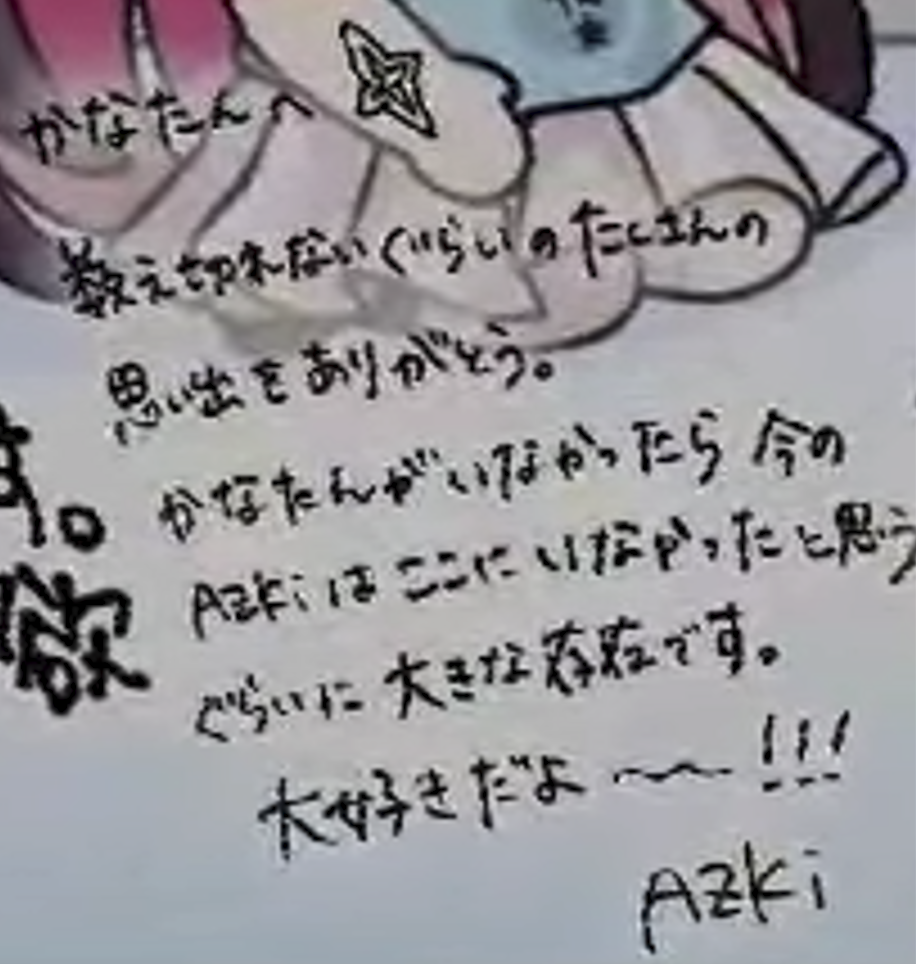 かなたんへ
数え切れないぐらいのたくさんの
思い出をありがとう。
かなたんがいなかったら 今の
AZKiはここにいなかったと思う
ぐらいに大きな存在です。
大好きだよ〜〜!!!
AZKi
す。
欲